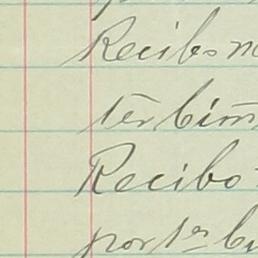 Recibo
ter bim
Recibo
por 1er b